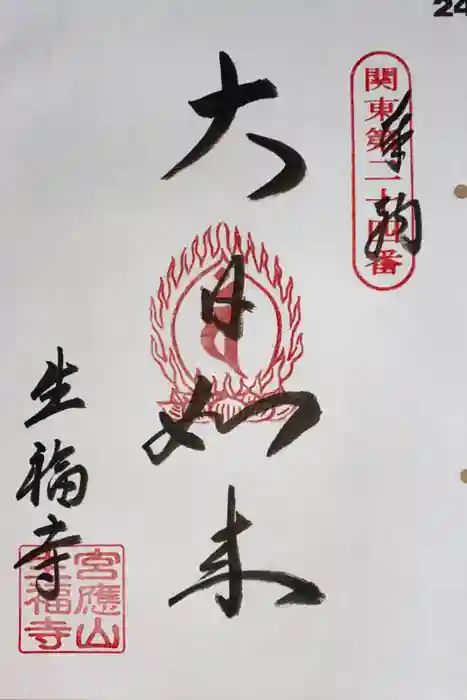 24
奉拝
関東第二十四番
大日如来
生福寺
宮應山
生福寺